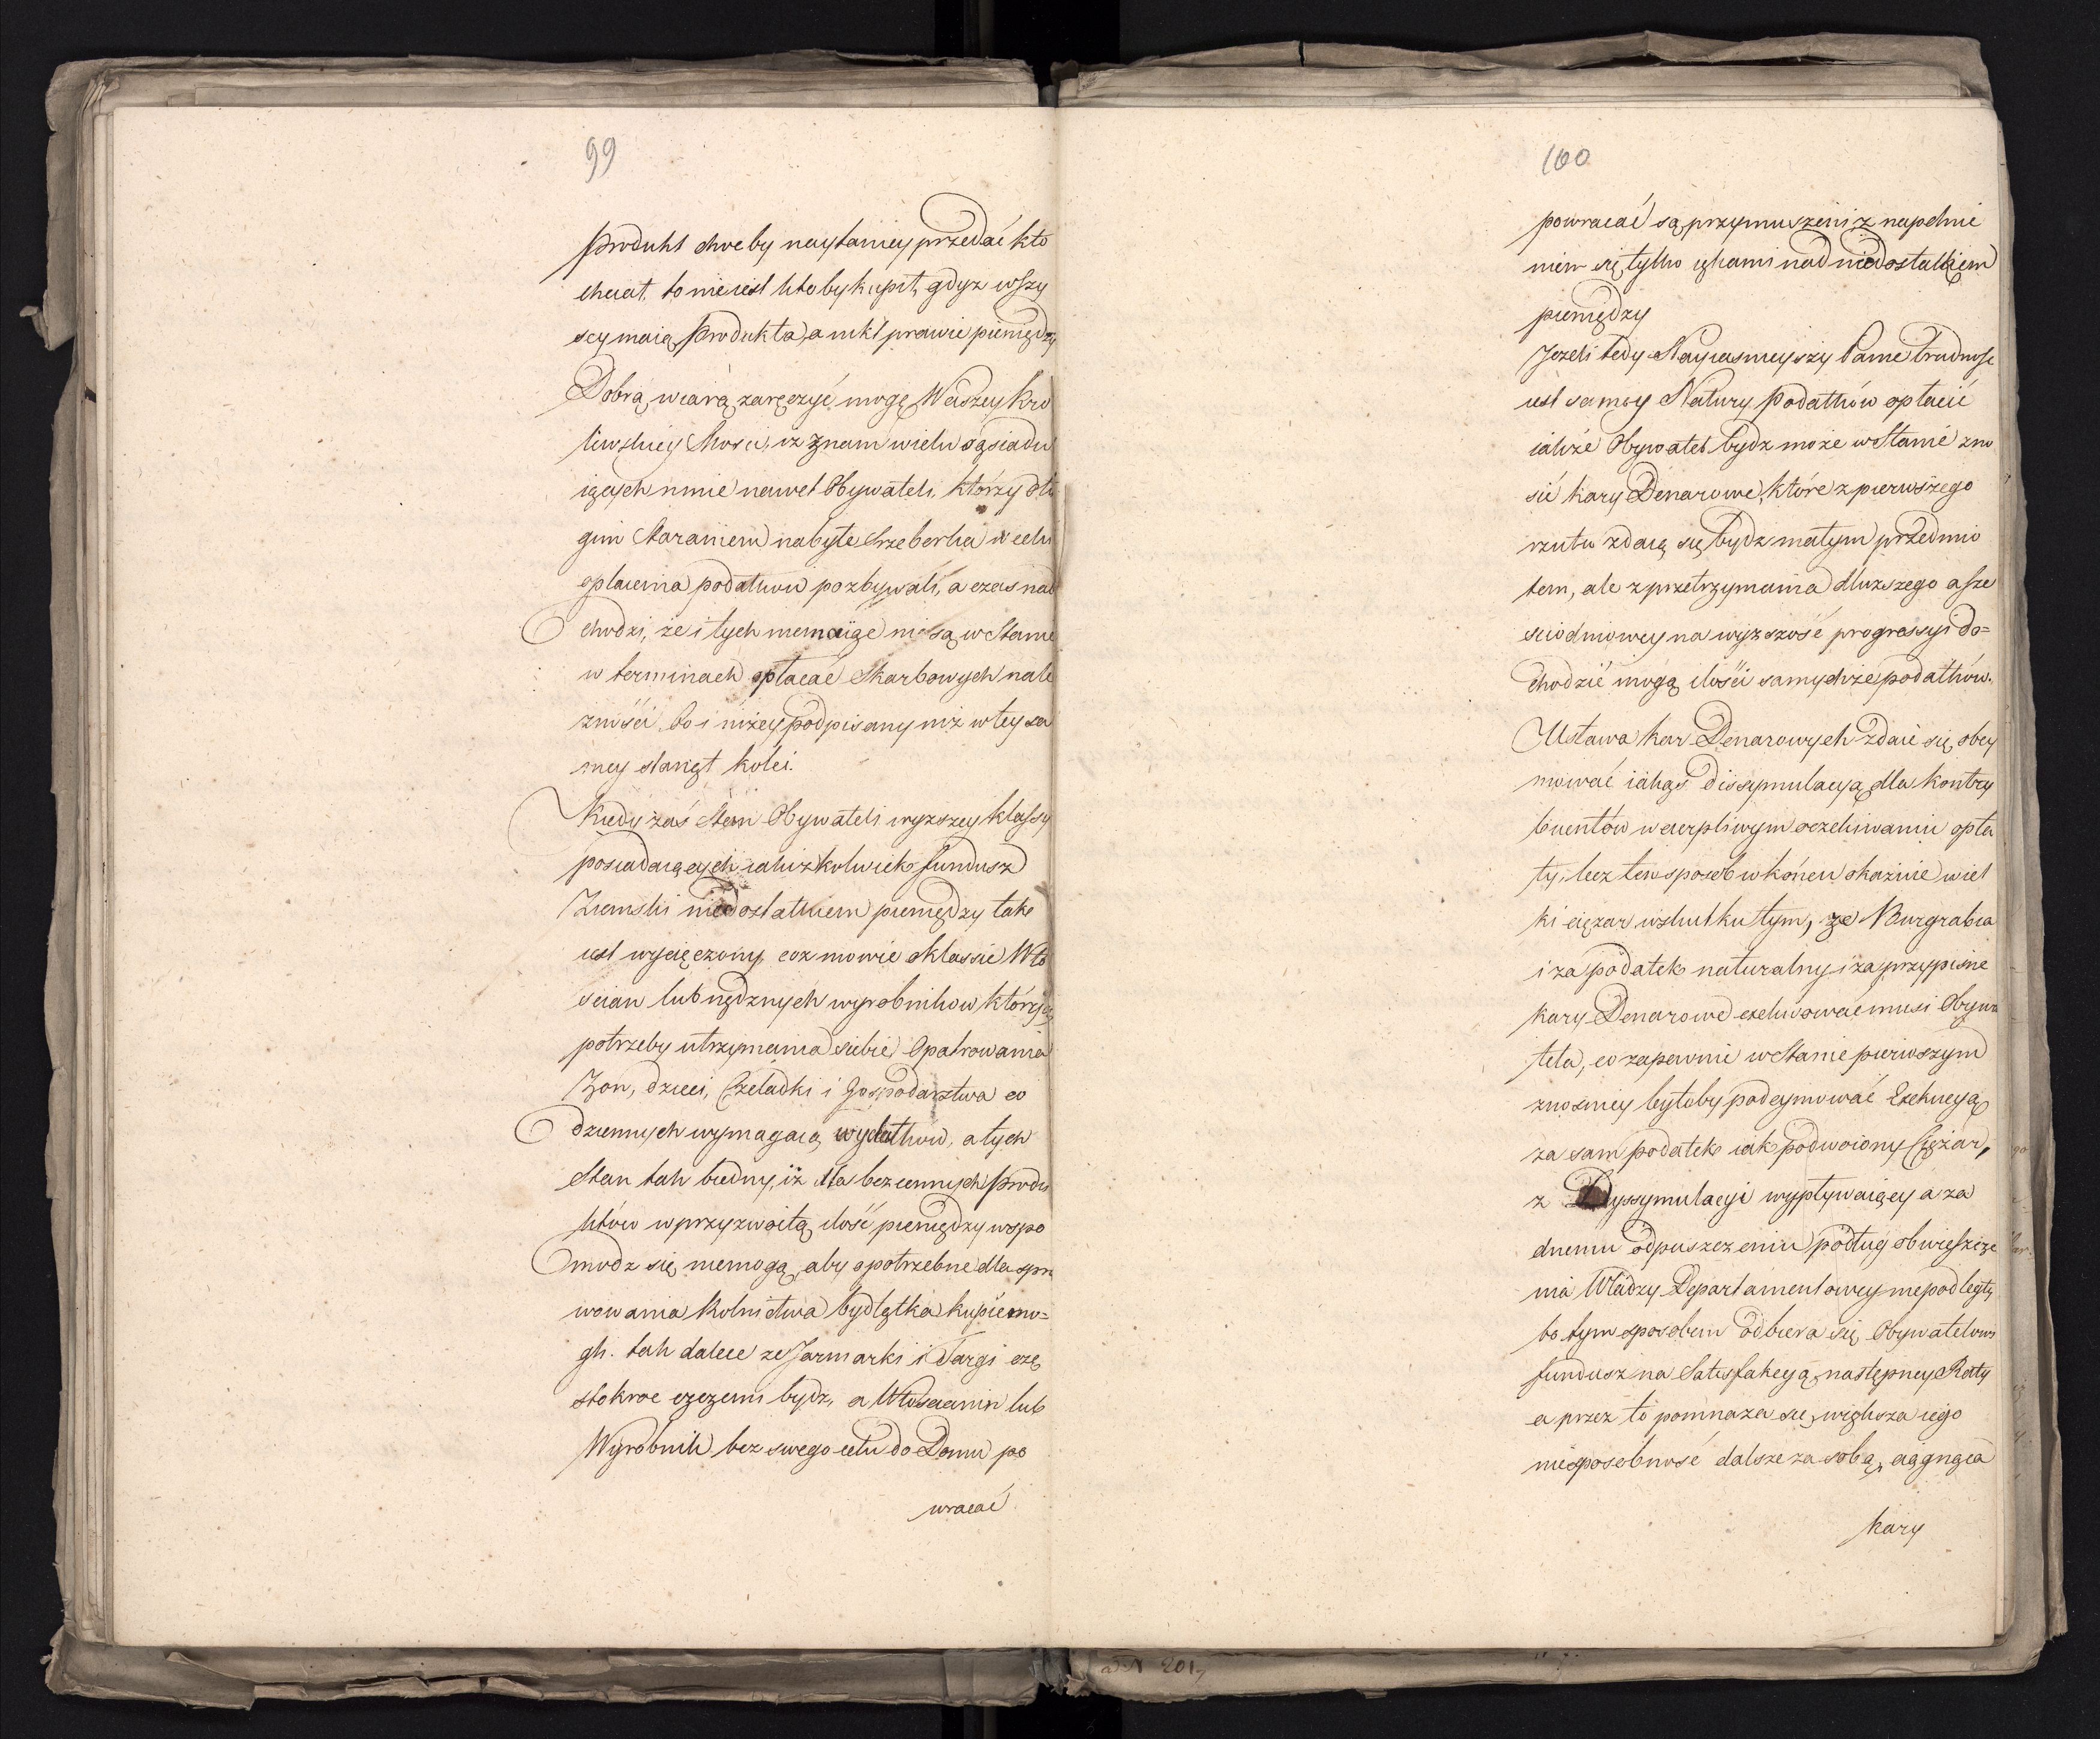 99
Produkt choć by naytaniey przedać kto
chciał, to nie iest kto by kupił, gdyż wszy
scy maią Produkta, a nikt prawie pieniędzy
Dobrą wiarą zaręczyć mogę Waszey Kró
lewskiey Mości, iż znam wielu sąsiadu
iących mnie nawet Obywateli, którzy dłu
gim staraniem nabyte Srzeberka w celu
opłacenia podatków pozbywali, a czas nad
chodzi, że i tych niemaiąc nie są w Stanie
w terminach opłacać Skarbowych nale
zności, bo i niżey podpisany już w tey sa
mey stanął kolei.
Kiedy zaś Stan Obywateli wyższey klassy
posiadaiących iakiżkolwiek fundusz
Ziemski niedostatkiem pieniędzy tak
iest wycięczony, coż mowić o klassie Wło
ścian lub nędznych wyrobników którzy
potrzeby utrzymania siebie, Opatrowania
Żon, dzieci, Czeladki i Gospodarztwa co
dziennych wymagaią wydatków, a tych
Stan tak biedny, iż dla bezcennych Produ
któw w przyzwoitą ilość pieniędzy wspo
modz się niemogą, aby opotrzebne dla spra
wowania Rolnictwa bydlątka kupić mo=
gli. tak dalece ze Jarmarki i Targi czę
stokroc czczemi bydź, a Włościanin lub
Wyrobnik bez swego celu do Domu po
wracać
100
powracać są przymuszeni z napełnie
niem się tylko iękami nad niedostatkiem
pieniędzy
Jezeli tedy Nayiasnieyszy Panie trudność
iest samey Natury Podatków opłacić
iakże Obywatel bydz może w Stanie zno
sić kary Denarowe, które z pierwszego
rzutu zdaią się bydz małym przedmio
tem, ale z przetrzymania dłuzszego a sze
sciodniowey na wyzszość progressyi do=
chodzić mogą ilości samychże podatków.
Ustawa kar Denarowych zdaie się obey
mować iakąś dissymulacyą dla kontry
buentów w cierpliwym oczekiwaniu opła
ty, lecz ten sposob w końcu okaznie wiel
ki cięzar w skutku tym, ze Burgrabia
i za podatek naturalny i za przypisne
kary Denarowe exekwować musi Obywa
tela, co zapewnie w Stanie pierwszym
znosniey byłoby podeymować Exekucyą
za sam podatek iak podwoiony Ciężar,
z Dyssymulacyi wypływaiącey a ża
dnemu odpuszczeniu podług obwieszcze
nia Władzy Departamentowey niepodległy
bo tym sposobem odbiera się Obywatelowi
fundusz na Satysfakcyą następney Raty
a przez to pomnaza się większa iego
niesposobność dalsze za sobą ciągnąca
kary
ad N 201,